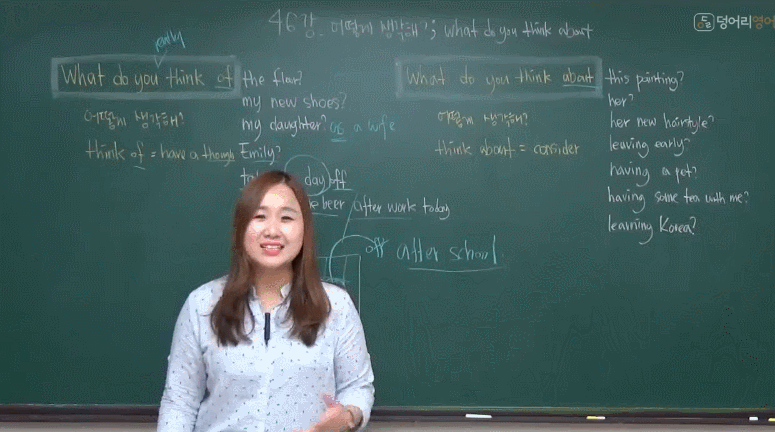 46강. 어떻게 생각해?; What do you think about
덩어리영어
really
What do you think of
the floor?
my new shoes?
my daughter? as a wife
Emily?
day off
beer after work today
off after school.
어떻게 생각해?
think of = have a though
What do you think about
this painting?
her?
her new hairtyle?
leaving early?
having a pet?
having some tea with me?
learning Korea?
어떻게 생각해?
think about = consider